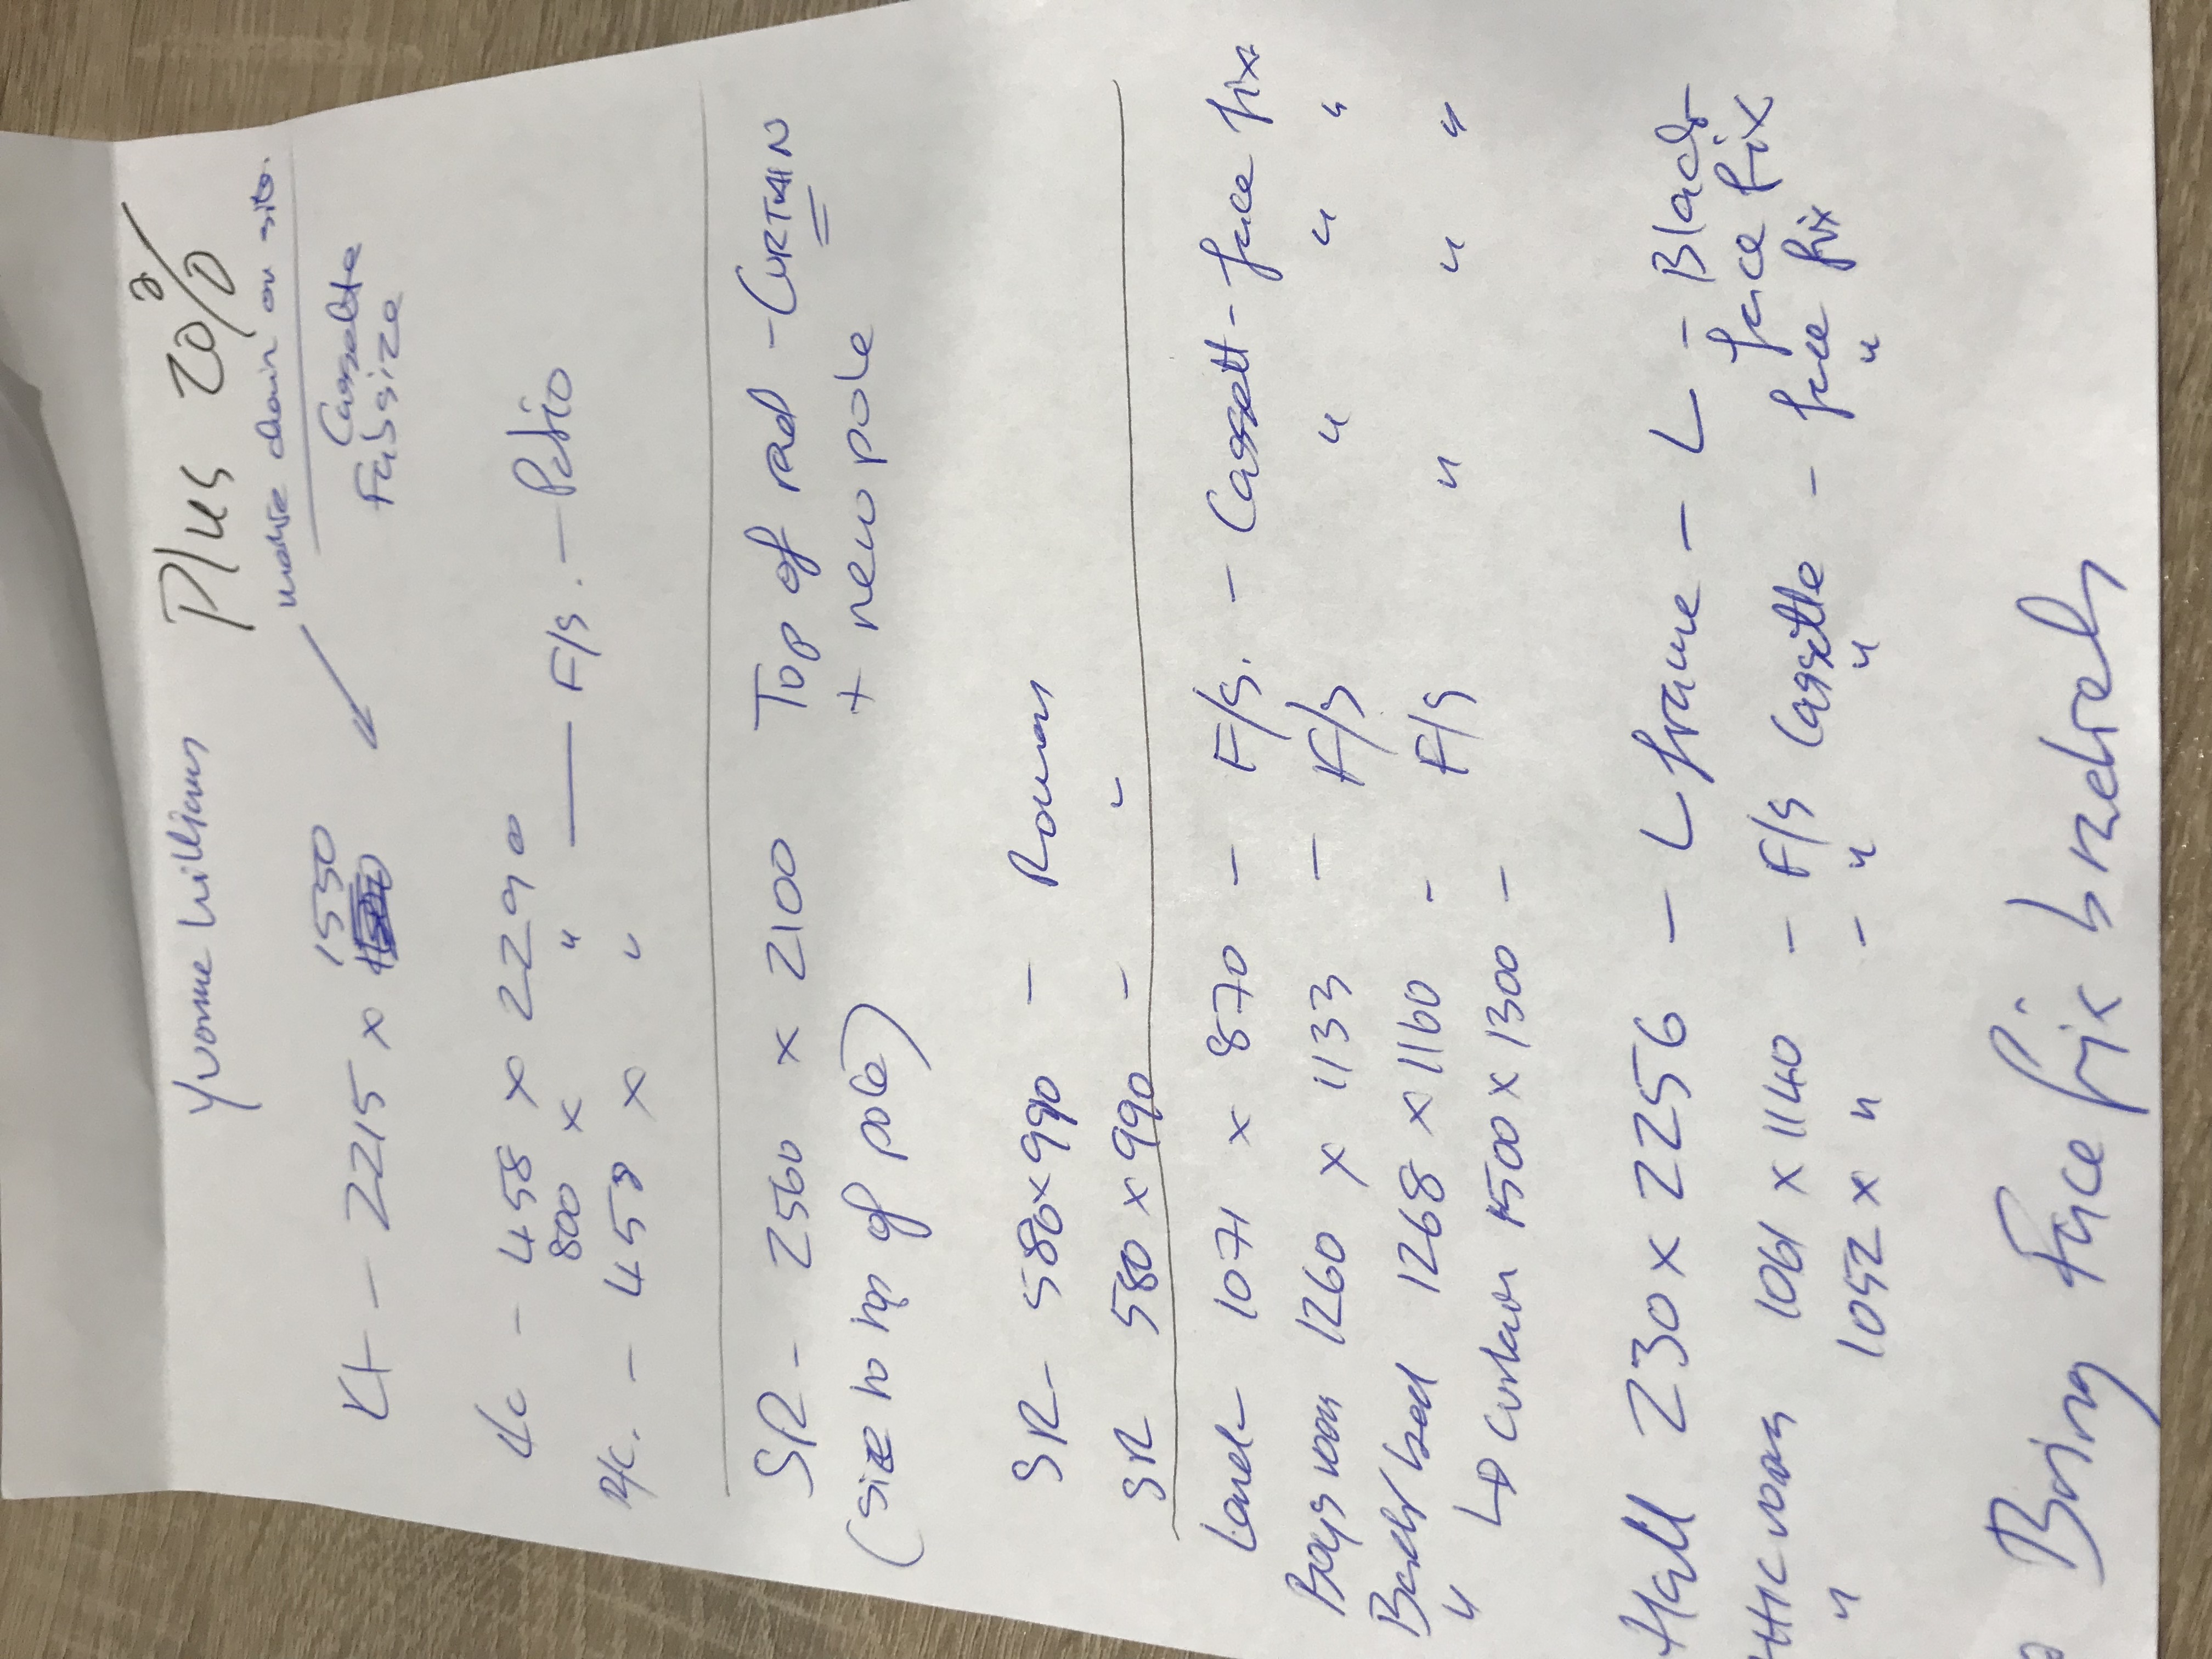 Yvonne Williams Plus 20%
make chain on site.
Kt - 2215 x 1550 Cassette
Fabsize
L/c - 458 x 2290
800 x " F/s. - Patio
R/c. - 458 x "
SR - 2560 x 2100 Top of rad - CURTAIN
(size to top of pole) + new pole
SR - 580 x 990 - Roman
SR 580 x 990 - "
Land - 1071 x 870 - F/s. - Casett - face fix
Boys room 1260 x 1133 - F/s " " "
Back bed 1268 x 1160 - F/s " " "
" ↳ curtain 1500 x 1300 -
Hall 230 x 2256 - L frame - L - Black
face fix
Attic room 1061 x 1140 - F/s Cassette - face fix
" 1052 x " - " " "
Bring Face fix brackets